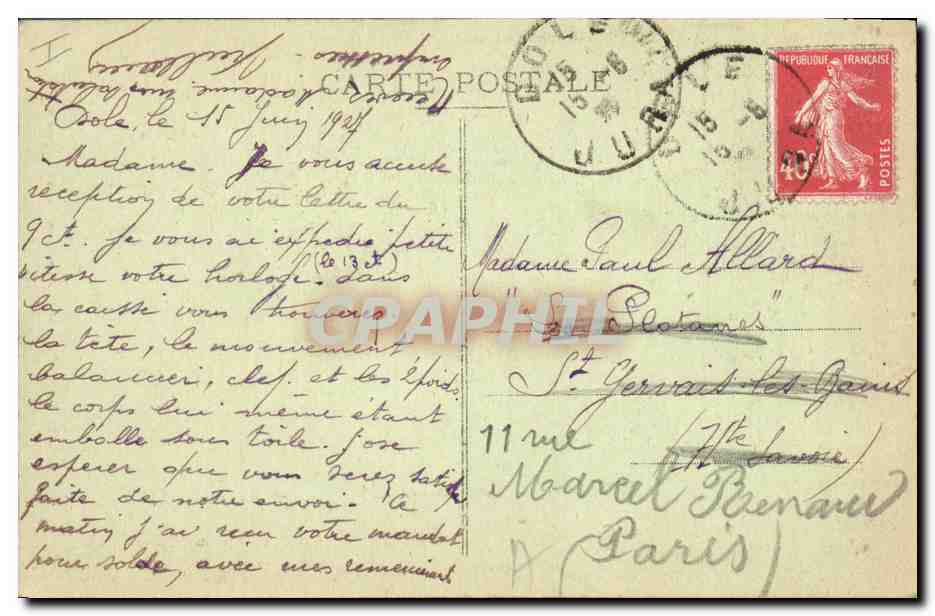 CARTE POSTALE
Dole, le 15 Juin 1927
Madame. Je vous accuse
reception de votre lettre du
9 ct. Je vous ai expedie petite
vitesse votre horloge (le 13 ct) dans
la caisse vous trouveres
la tête, le mouvement
balancier, clef. et les 2 poids.
le corps lui même étant
emballe sous toile. J'ose
esperer que vous serez satis
faite de notre envoi. Ce
matin j'ai reçu votre mandat
pour solde, avec mes remerciements
recevez Madame mes salutat
empressées
DOLE
15 - 6
JURA
DOLE
15 - 6
JURA
REPUBLIQUE FRANÇAISE
40c
POSTES
Madame Paul Allard
"Les Platanes"
St. Gervais-les-Bains
(Hte Savoie)
11 rue
Marcel Renaud
(Paris)
CPAPHIL